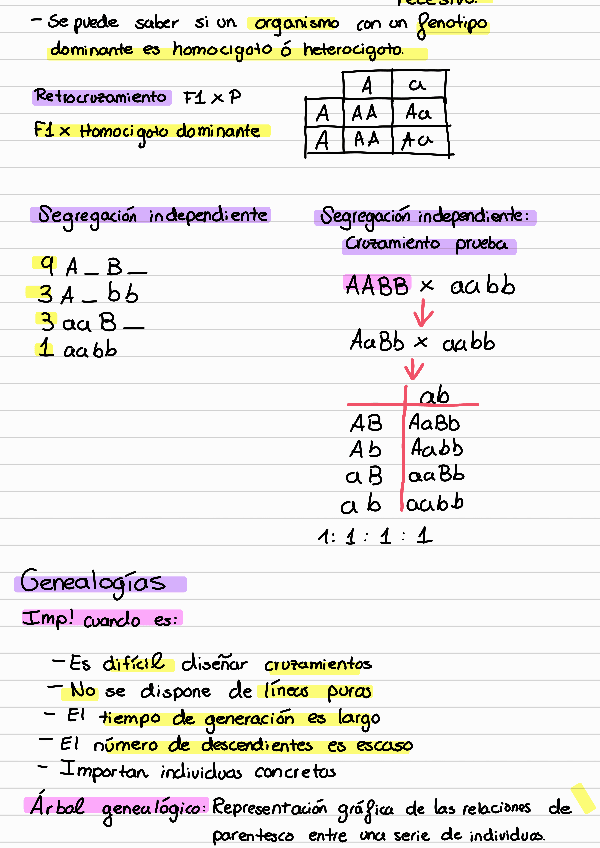 recesivo.
- Se puede saber si un organismo con un fenotipo
dominante es homocigoto ó heterocigoto.
Retrocruzamiento F1 x P
F1 x Homocigoto dominante
A a
A AA Aa
A AA Aa
Segregación independiente
9 A _ B _
3 A _ bb
3 aa B _
1 aabb
Segregación independiente:
Cruzamiento prueba
AABB x aabb
AaBb x aabb
ab
AB AaBb
Ab Aabb
aB aaBb
ab aabb
1: 1 : 1 : 1
Genealogías
Imp! cuando es:
- Es difícil diseñar cruzamientos
- No se dispone de líneas puras
- El tiempo de generación es largo
- El número de descendientes es escaso
- Importan individuos concretos
Árbol genealógico: Representación gráfica de las relaciones de
parentesco entre una serie de individuos.